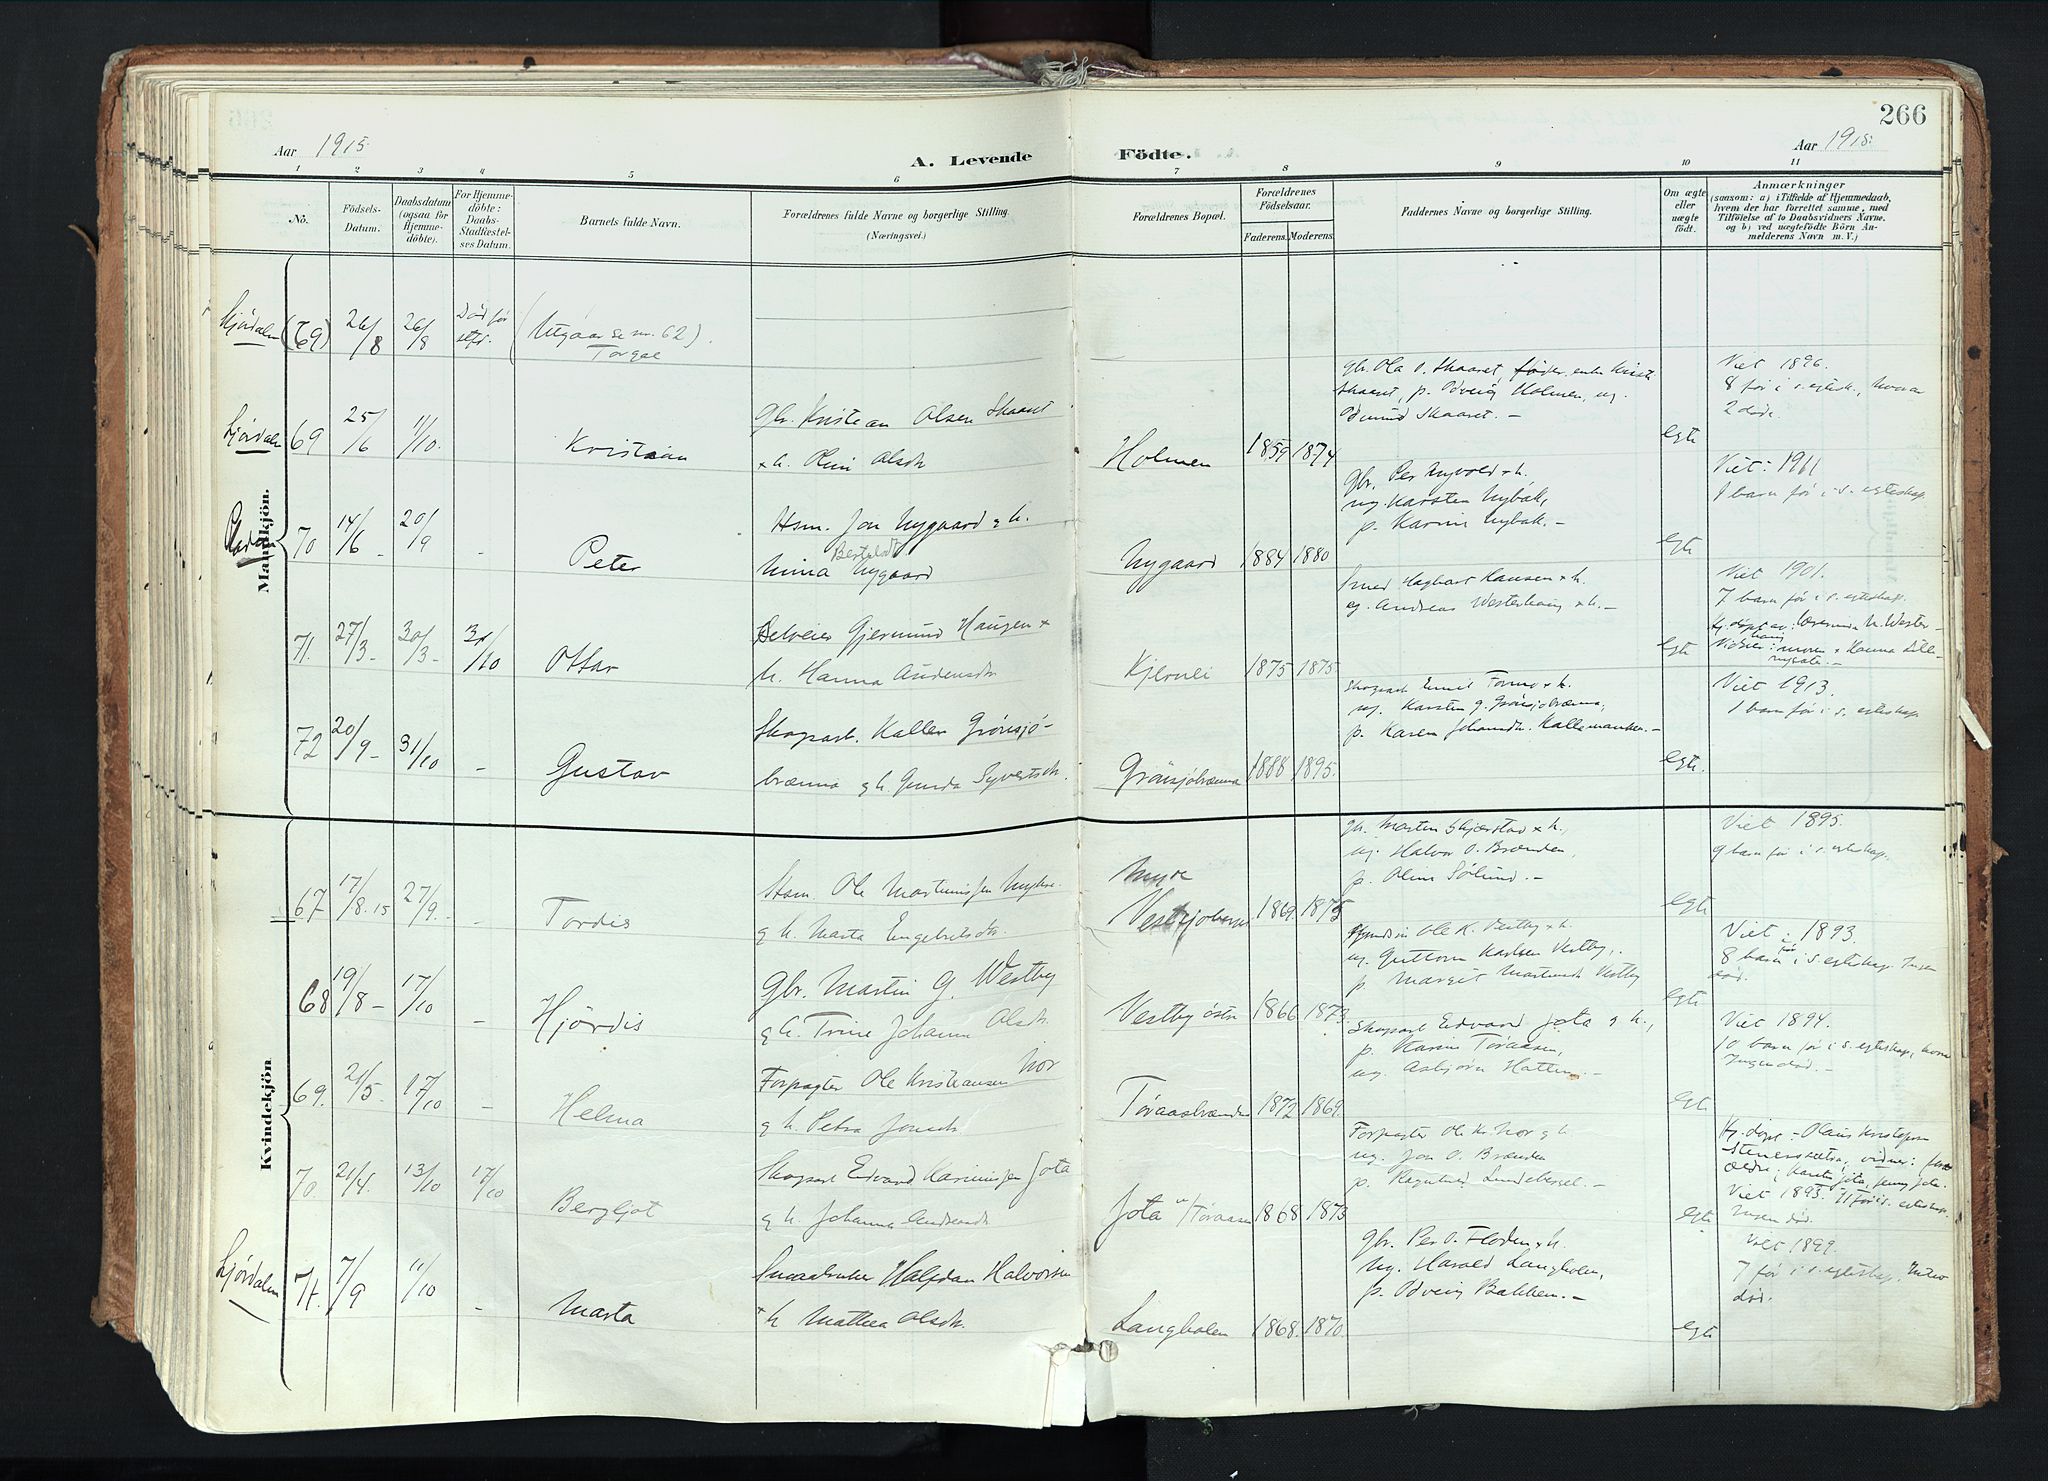 266
Aar 1915
A. Levende Födte.
Aar 1915
1 2 3 4 5 6 7 8 9 10 11
No.
Födsels-Datum.
Daabsdatum (ogsaa for Hjemmedöbte).
For Hjemmedöbte: Daabs-Stadfæstelses Datum.
Barnets fulde Navn.
Forældrenes fulde Navne og borgerlige Stilling.
(Næringsvei.)
Forældrenes Bopæl.
Forældrenes Födselsaar.
Faderens. Moderens.
Faddernes Navne og borgerlige Stilling.
Om ægte eller uægte födt.
Anmærkninger
(saasom: a) i Tilfælde af Hjemmedaab,
hvem der har forrettet samme, med
Tilföielse af to Daabsvidners Navne.
og b) ved uægtefödte Börn Anmelderens Navn m. V.)
Mandkjön.
(69) 26/8 26/8 Död før stf. (Utgaar se nr. 62).
Torgal
Ljørdalen
69 25/6 11/10. Kristian
Gbr. Kristian Olsen Skaaret
x h. Olsdtr
Holmen 1859 1874
gbr. Ola O. Skaaret
Skaaret, p. Odveig Holmen, ug.
Odmund Skaaret. –
egte
Viet 1896.
8 før i s. egtesk., hvorav
2 døde.
70 14/6 – 20/9 – Peter
Hsm. Jon Nygaard g h.
Nygaard
Nygaard 1884 1880
gbr. Per x h.
ug. Karsten Nybak,
p. Karin Nybak. –
egte
Viet: 1911
1 barn før i s. egteskap.
71. 27/3 – 30/3 – 31/10 Ottar
Selveier Gjermund Haugen x
h. Hanna Audensdtr
Kjernli 1875 1875
Smed Hagbart Hansen x h.
ug. Andreas Westerhaug x h. –
egte
Viet 1901.
7 barn før i s. egteskap.
72 20/9 – 31/10 – Gustav
Skogsarb. Kalle Grönsjö-
brænna g h. Gunda Syvertsdtr.
Grönsjöbrænna 1888 1895.
Skogsarb. Emil x h.
ug. Karsten g. Grönsjöbrænna,
p. Karen
egte.
Viet 1913.
1 barn før i s. egteskap
Kvindekjön
67 17/8. 15 27/9. – Tordis
Hsm. Ole Martinussen
g h. Marta Engebretsdtr.
1869. 1875
gbr. Morten x h.,
ug. Halvor O. Brænden,
p. Oline Sølund. –
egte
Viet 1895.
9 barn før i s. egteskap.
68 19/8 – 17/10 – Hjördis
Gbr. Martin G. Westby
g h. Trine Johanna Olsdtr
Vestby östre 1866 1873.
Ole K. Vestby x h.
ug. Guttorm Karlsen Vestby,
p. Margit Vestby
egte
Viet: 1893.
8 barn før i s. egteskap. Ingen
død.
69. 21/5. 17/10 – Helma
Forpagter Ole Kristiansen Nor
g h. Petra Jonsdtr
Töraasbrænden 1872 1869.
Skogsarb Edvard Jota g h.,
p. Karin Töraasen,
ug. Asbjørn Hatten. –
egte
Viet 1894.
10 barn før i s. egteskap, hvorav
Ingen død. –
70. 21/4. 13/10 17/10 Bergljot
Skogsarb Edvard Jota
g h. Johanna Andreasdtr
Jota i Töraasen 1868 1873
Forpagter Ole Kr. Nor g h.
ug. Jon O. Brænden
p. Ragnhild Lundeberget. –
egte
Viet 1893. 11 før i s. egteskap.
Ingen død.
Ljørdalen
71. 7/9 11/10 – Marta
Smaabruker Halfdan Halvorsen
x h Mathea Olsdtr.
Langholen 1868. 1870.
gbr. Per O. Floden x h.
ug. Harald Langholen,
p. Odveig Bakken. –
egte
Viet 1899.
7 før i s. egteskap,
død.